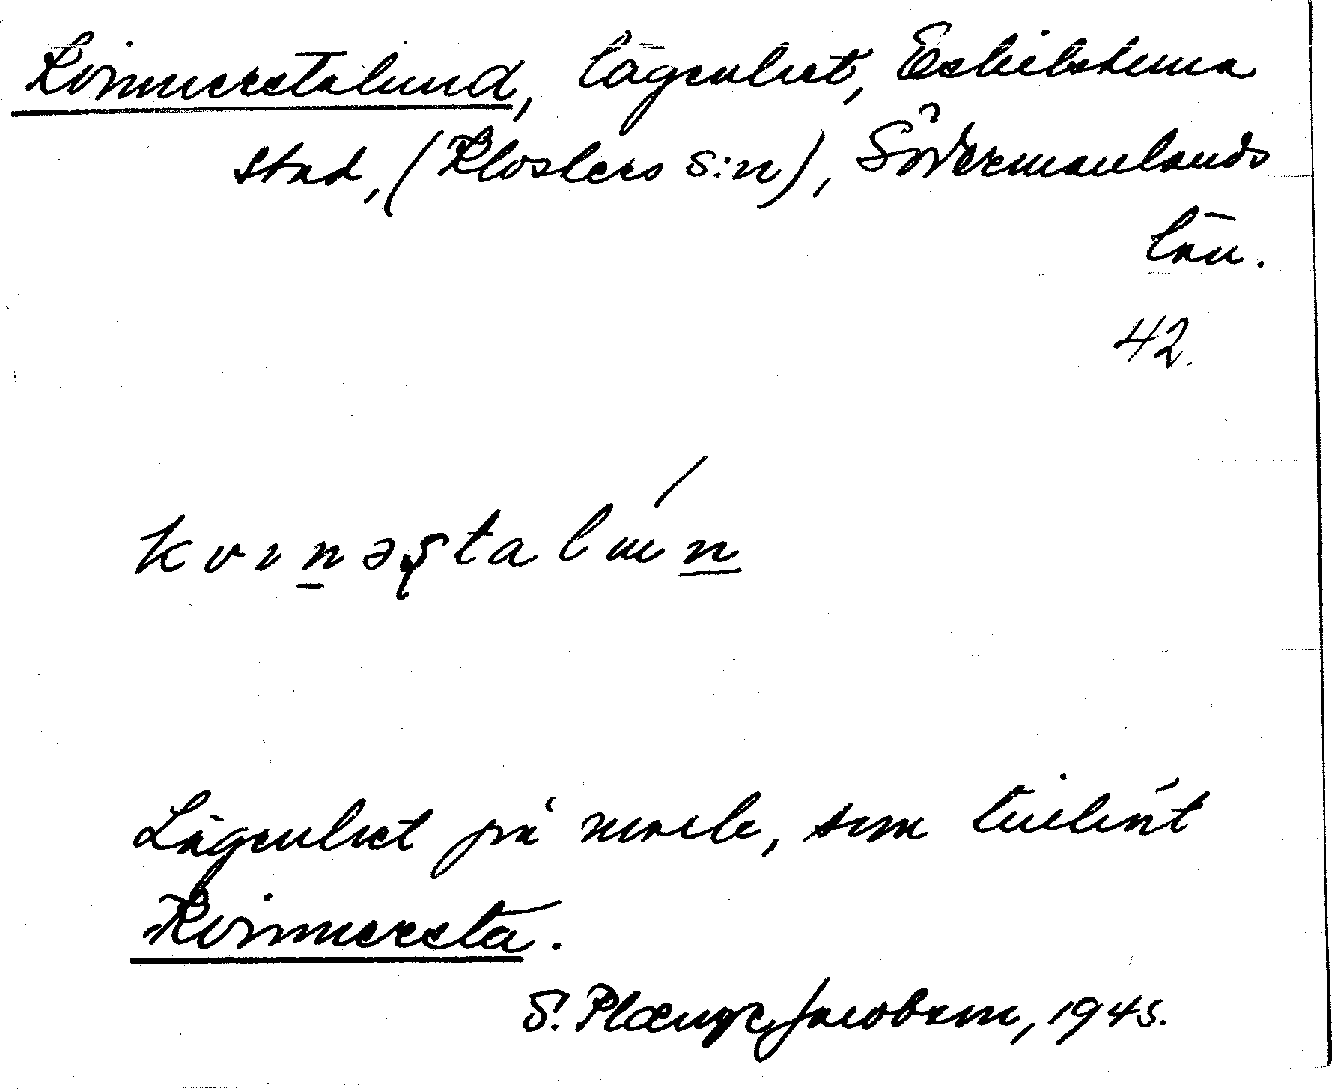 Kvinnerstalund, lägenhet, Eskilstuna
stad, (Klosters s:n), Södermanlands
län.
42.
kvinəʂtalún
Lägenhet på mark, som tillhört
Kvinnersta.
S. Plœngé Jacobson, 1945.